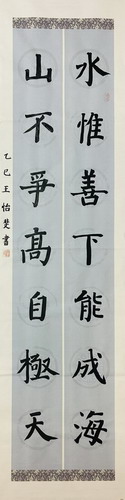 水惟善下能成海
山不爭高自極天
乙巳王怡斐書